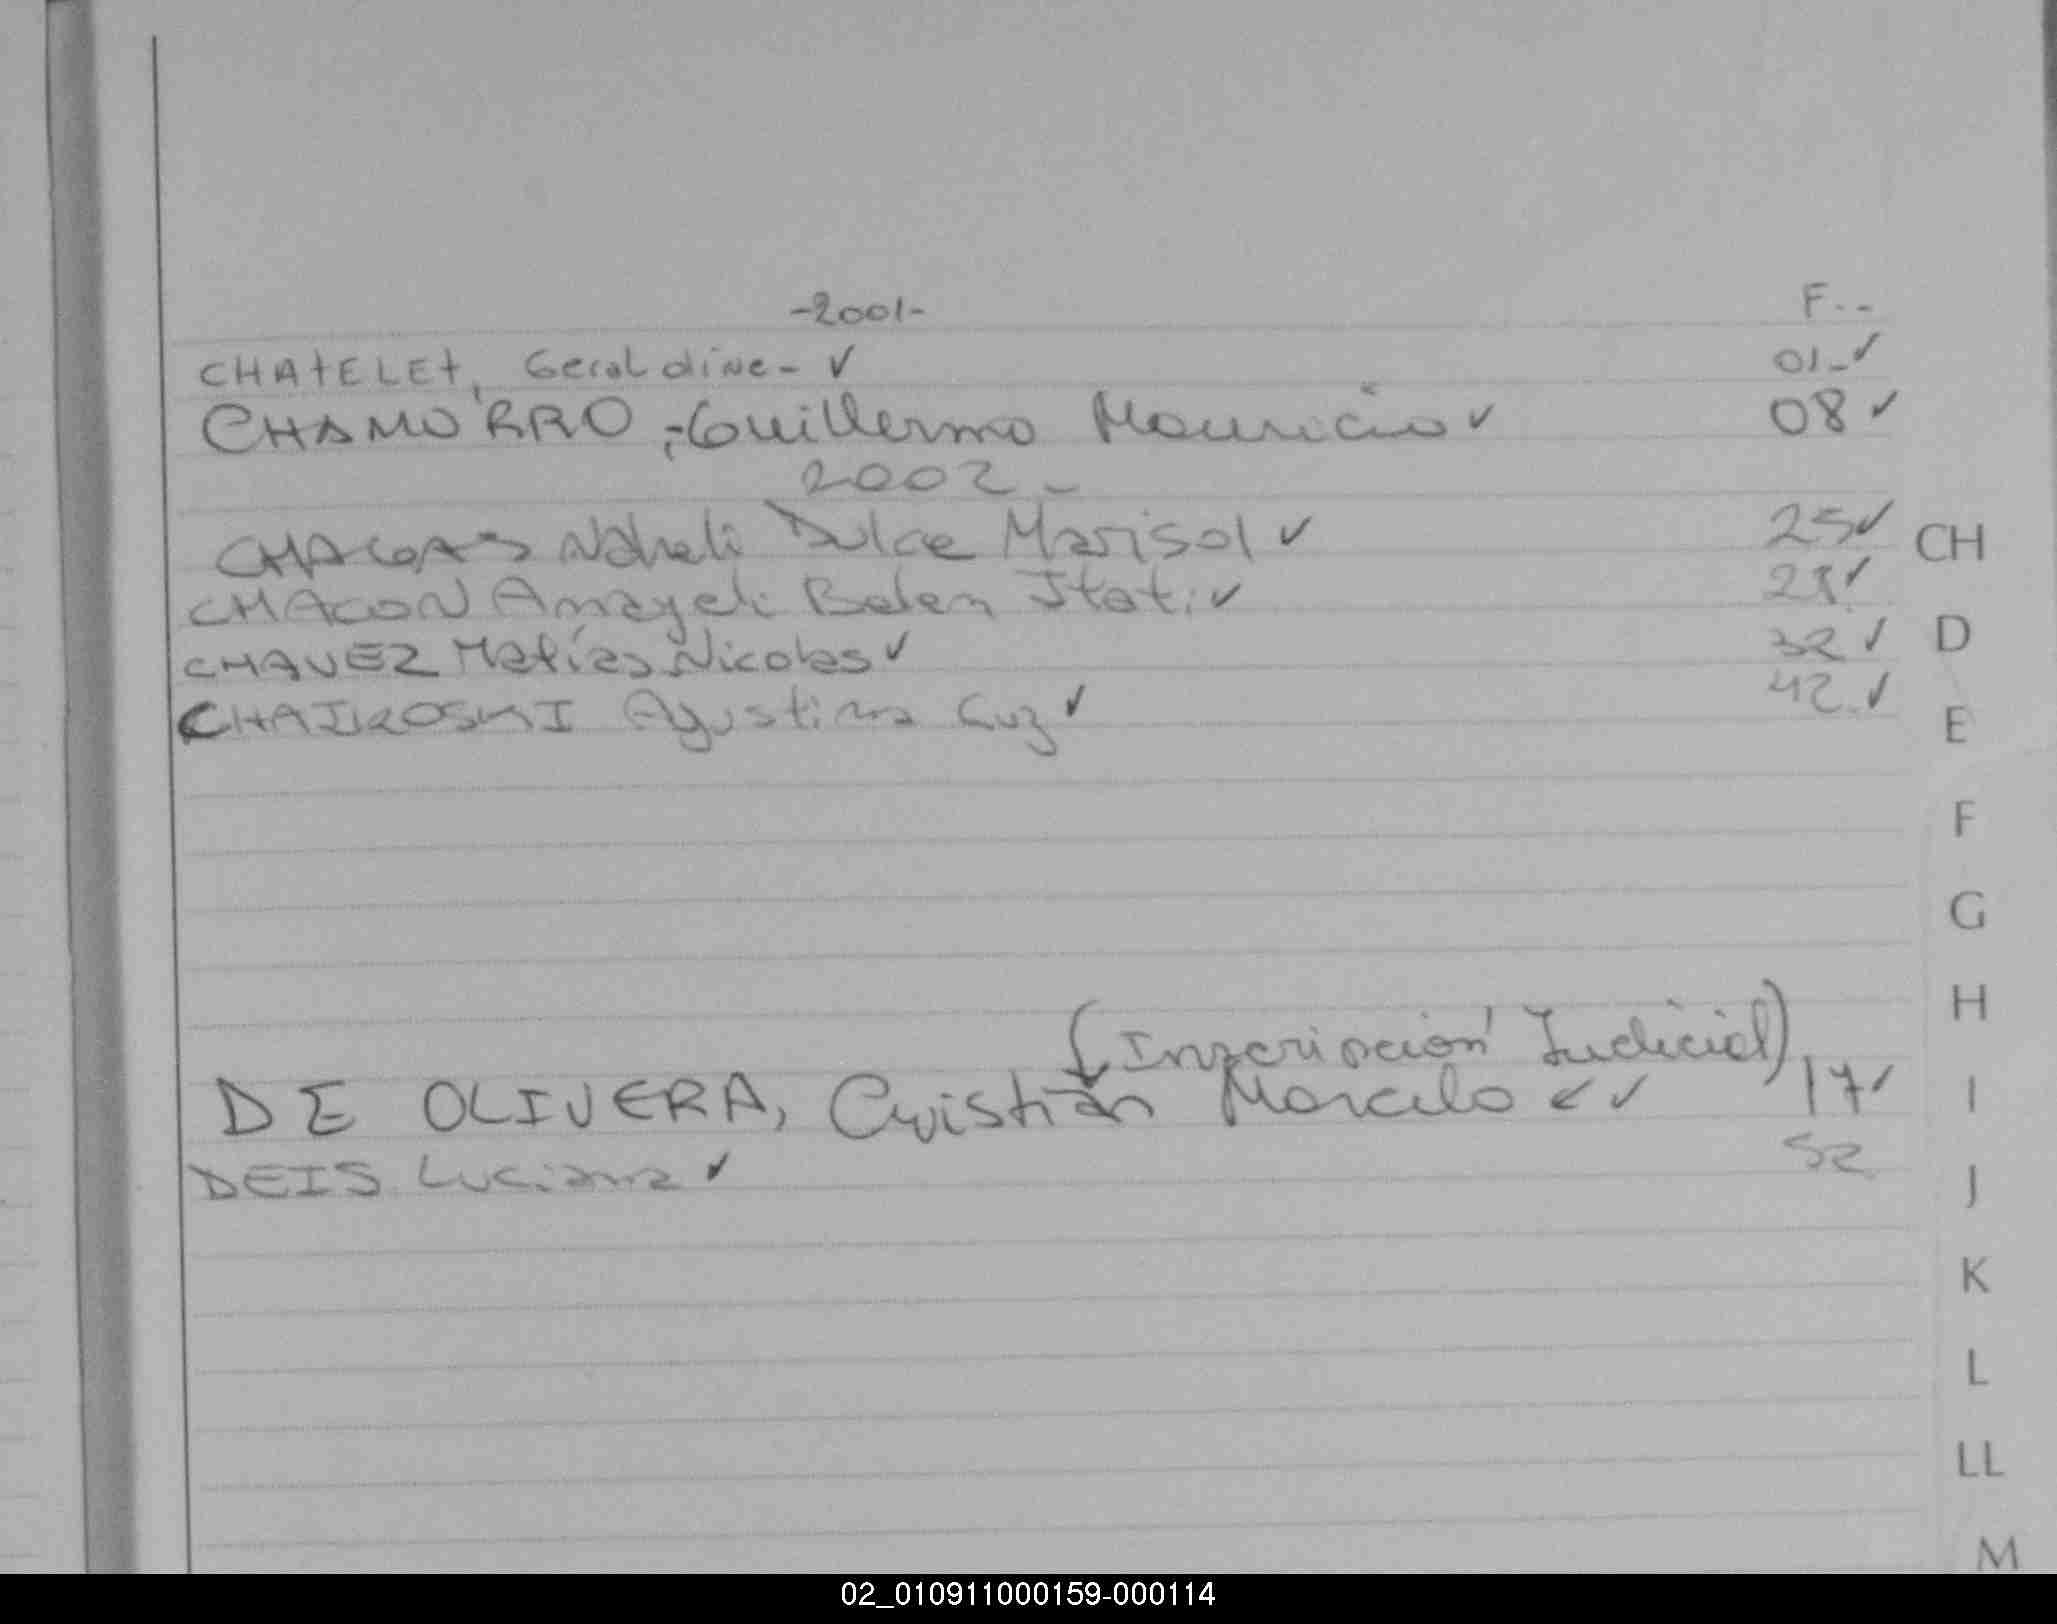 -2001- F..
CHATELET, Geraldine- ✓ 01-✓
CHAMORRO, Guillermo Mauricio ✓ 08 ✓
2002-
CHAGAS Nahueli Dulce Marisol ✓ 25✓ CH
CHACON Anayeli Belen Itati ✓ ✓
D
CHAVEZ Matías Nicolas ✓ 32 ✓
CHAIKOSKI Agustina Luz ✓ 42 ✓
E
F
G
H
(Inscripción Judicial)
DE OLIVERA, Cristian Marcelo ✓ ✓ 17✓ I
DEIS Luciana ✓ 52
J
K
L
LL
M
02_010911000159-000114